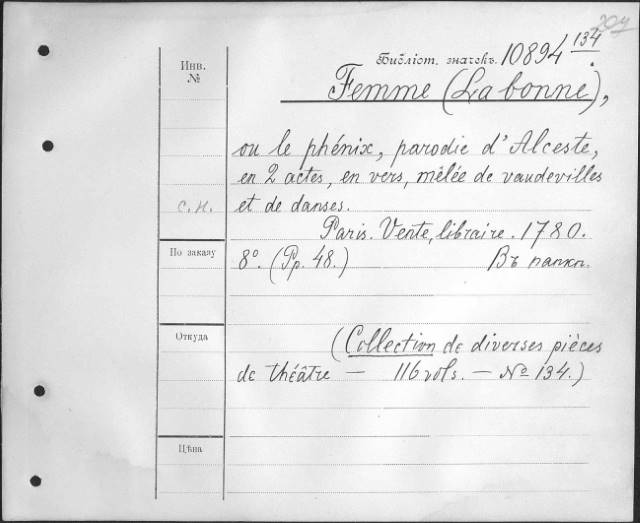 204
Инв.
№
Библіот. значекъ. 10894 134.
Femme (La bonne),
ou le phénix, parodie d'Alceste,
en 2 actes, en vers, mêlée de vaudevilles
с.н. et de danses.
Paris. Vente, libraire. 1780.
По заказу
8º. (Pp. 48.) Въ папкѣ.
Откуда
(Collection de diverses pièces
de théâtre — 116 vols. — № 134.)
Цѣна